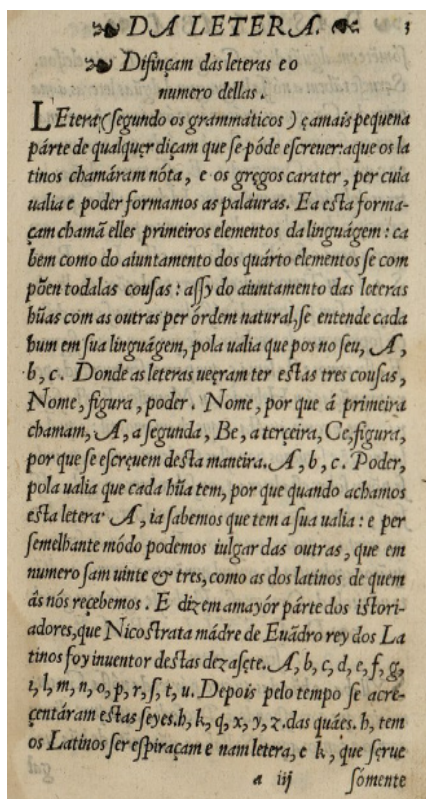 DA LETERA. 3
Difinçam das leteras e o
numero dellas.
LEtera (segundo os grammáticos) ę a mais pequena
párte de qualquęr diçam que se póde escreuer: a que os la
tinos chamáram nóta, e os gręgos carater, per cuia
ualia e poder formamos as paláuras. E a esta forma-
çam chamã elles primeiros elementos da linguágem: ca
bem como do aiuntamento dos quátro elementos se com
põen todalas cousas: assy do aiuntamento das leteras
hũas com as outras per órdem naturál, se entende cada
hum em sua linguágem, pola ualia que pos no seu, A,
b, c. Donde as leteras uęęram ter estas tres cousas,
Nome, figura, poder. Nome, por que á primeira
chamam, A, a segunda, Be, a terçeira, Ce, figura,
por que se escręuem desta maneira. A, b, c. Poder,
pola ualia que cada hũa tem, por que quando achamos
esta letera A, ia sabemos que tem a sua ualia: e per
semelhante módo podemos iulgar das outras, que em
numero sam uinte & tres, como as dos latinos de quem
ás nós reçebemos. E dizem a mayór párte dos istori-
adores, que Nicostrata mádre de Euãdro rey dos La
tinos foy inuentor destas dezasęte. A, b, c, d, e, f, g,
i, l, m, n, o, p, r, s, t, u. Depois pelo tempo se acre-
çentáram estas seyes. h, k, q, x, y, z. das quáes. h, tem
os Latinos ser espiraçam e nam letera, e k, que sęrue
a iij sómente